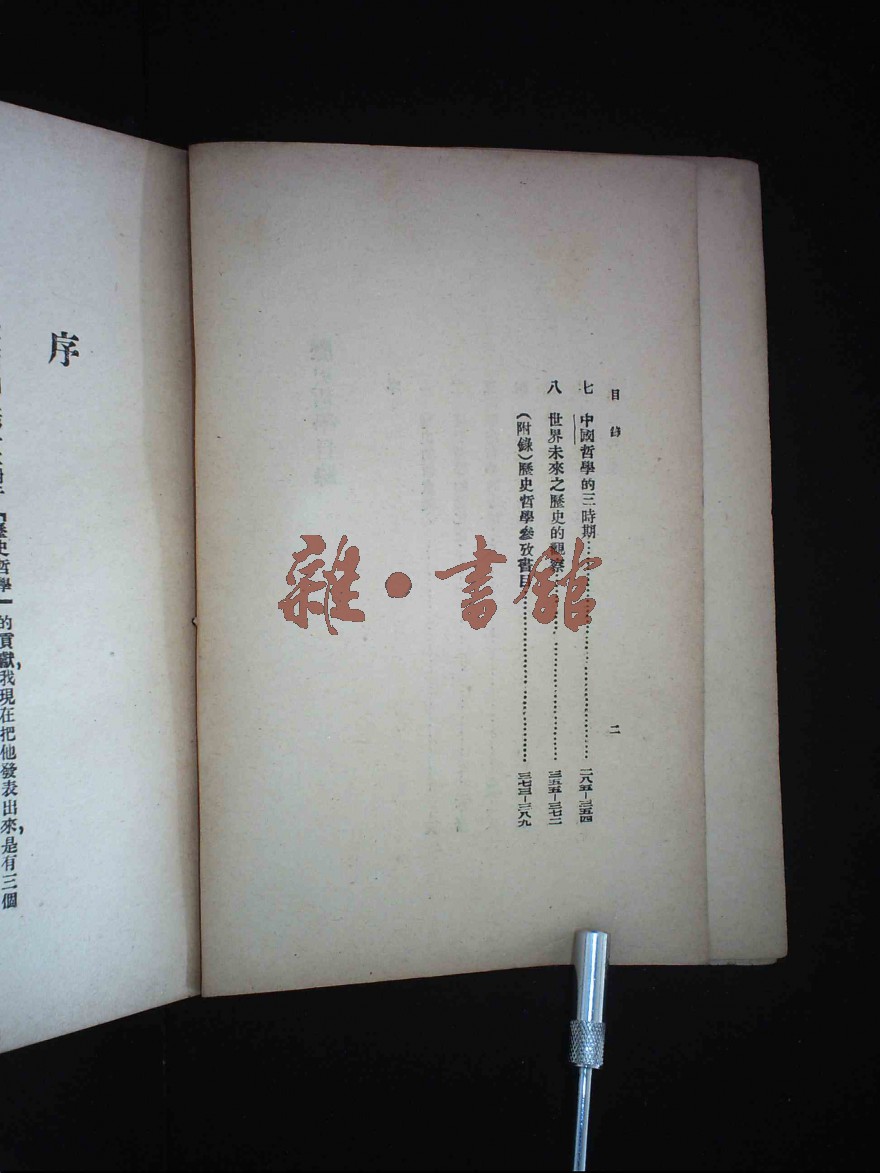 目錄
二
七 中國哲學的三時期……二八五—三五四
八 世界未來之歷史的觀察……三五五—三七二
(附錄)歷史哲學參攷書目……三七三—三八九
序
『歷史哲學』的貢獻,我現在把他發表出來,是有三個
雜·書館